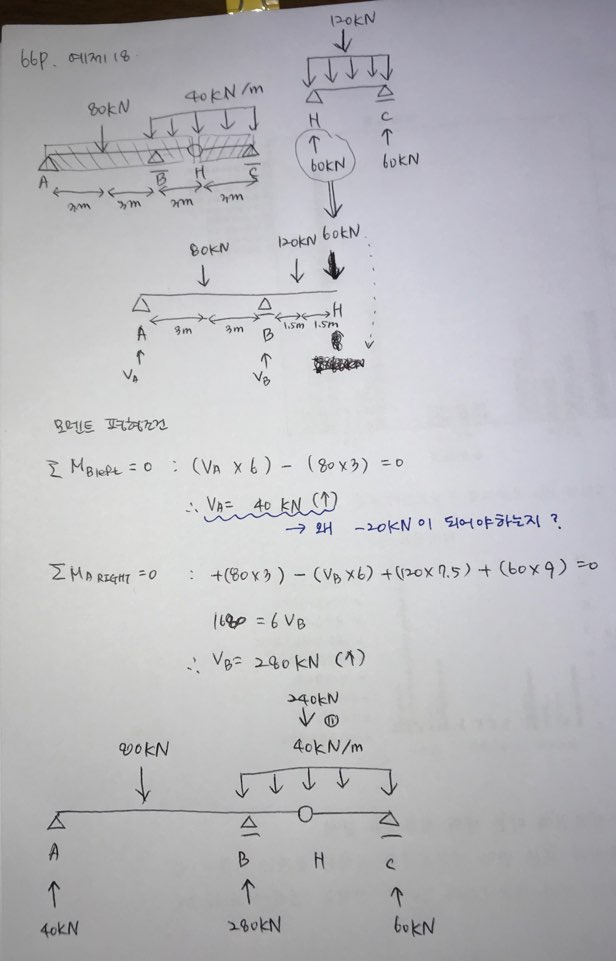 66P. 예제18.
120KN
80KN
40KN/m
H
C
60KN
60KN
A
B
H
C
3m
3m
3m
3m
80KN
120KN
60KN
A
3m
3m
B
1.5m
1.5m
H
VA
VB
모멘트 평형조건
∑ MB left = 0 : (VA × 6) - (80×3) = 0
∴ VA = 40 KN (↑)
→ 왜 -20KN이 되어야하는지?
∑ MA RIGHT = 0 : +(80×3) - (VB×6) + (120×7.5) + (60×9) = 0
1680 = 6 VB
∴ VB = 280KN (↑)
240KN
80KN
40KN/m
A
B
H
C
40KN
280KN
60KN